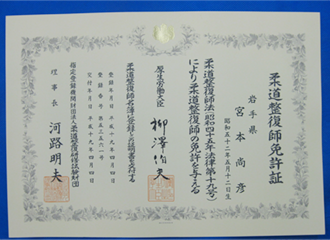 柔道整復師免許証
岩手県
宮本尚彦
昭和五十二年五月十二日生
柔道整復師法（昭和四十五年法律第十九号）
により柔道整復師の免許を与える
厚生労働大臣 柳澤伯夫
柔道整復師名簿に登録したので本証を交付する
登録年月日 平成十九年四月四日
登録番号
交付年月日 平成十九年四月四日
指定登録機関財団法人柔道整復研修試験財団
理事長 河路明夫